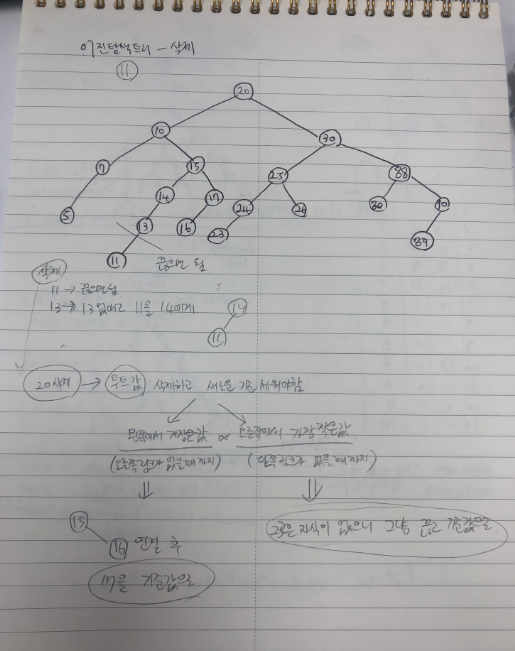 이진탐색트리 - 삭제
11
20
10 30
7 15 25 88
14 17 24 26 30 90
5 13 16 23 89
11
끊으면 됨
삭제
11 → 끊으면 됨
13 → 13 없애고 11을 14에게
14
11
20삭제 → 루트값 삭제하고 새로운 기준 세워야함
왼쪽에서 가장큰값 or 오른쪽에서 가장 작은값
(오른쪽 링크가 없을때까지) (왼쪽링크가 없을때까지)
15
16 연결 후
17을 기준값으로
그냥 끊고 기준값으로